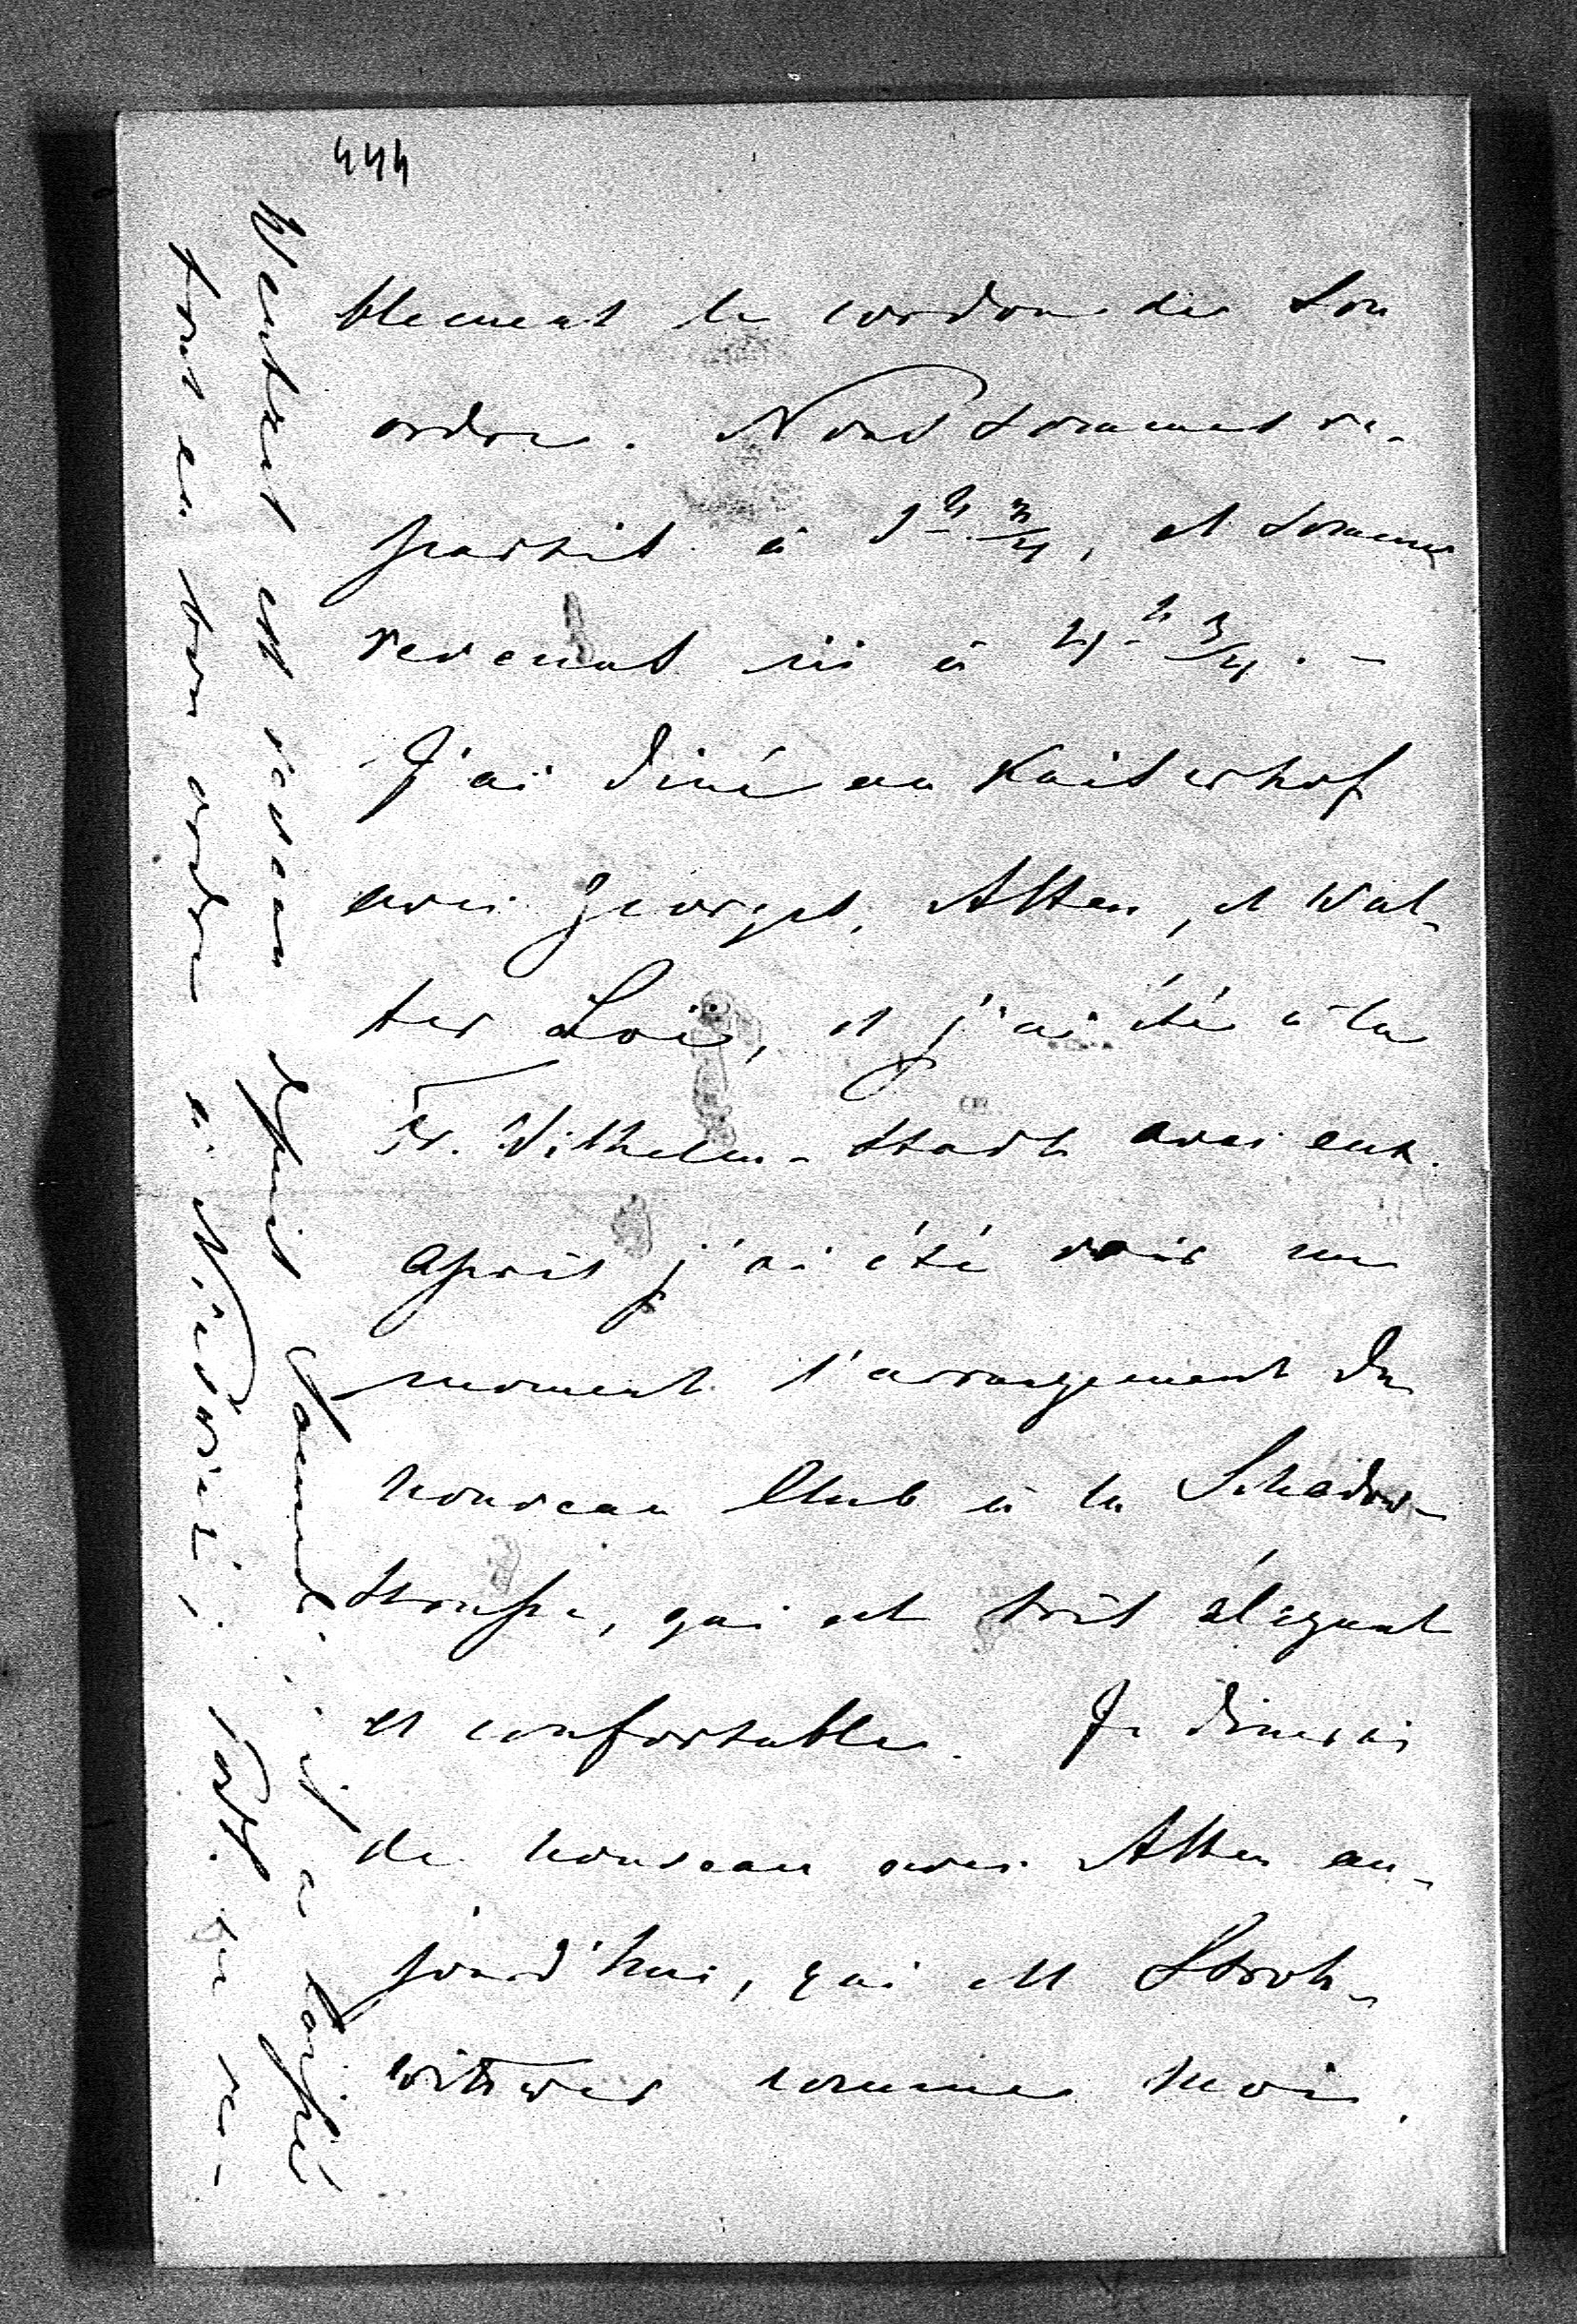 444
blement le cordon de son
ordre. Nous sommes re-
partit à 1 h 3/4, et sommes
revenus ici à 4 h 3/4. –
J'ai diné au Kaiserhof
avec Georges, Alten, et Wal-
ter Loë, et j'ai été à la
Fr. Wilhelm-Stadt avec eux.
Après j'ai été voir un
moment l'arrangement du
nouveau Club à la Schadow-
Strasse, qui est très élégant
et confortable. Je dinerai
de nouveau avec Alten au-
jourd'hui, qui est Stroh-
wittwer comme moi.
est revenu depuis Samedi. il a laissé
tout en bon ordre à